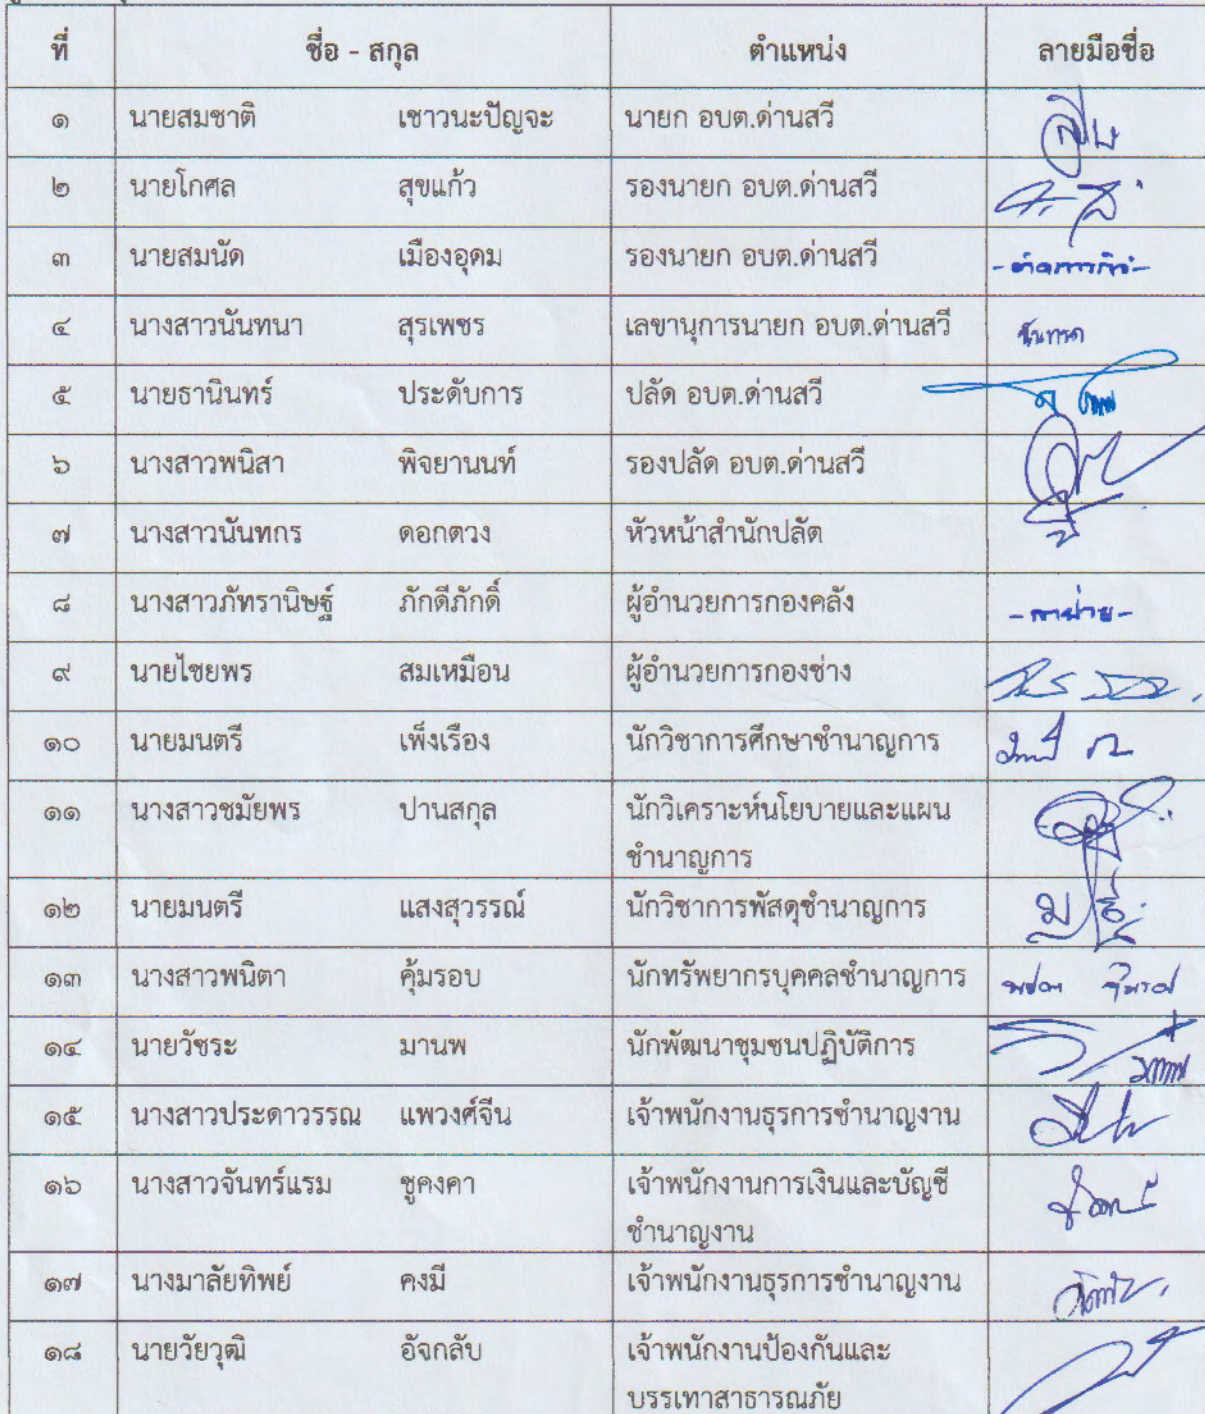 ที่ ชื่อ - สกุล ตำแหน่ง ลายมือชื่อ
๑ นายสมชาติ เชาวนะปัญจะ นายก อบต.ด่านสวี
๒ นายโกศล สุขแก้ว รองนายก อบต.ด่านสวี
๓ นายสมนัด เมืองอุดม รองนายก อบต.ด่านสวี -ติดภารกิจ-
๔ นางสาวนันทนา สุรเพชร เลขานุการนายก อบต.ด่านสวี นันทนา
๕ นายธานินทร์ ประดับการ ปลัด อบต.ด่านสวี
๖ นางสาวพนิสา พิจยานนท์ รองปลัด อบต.ด่านสวี
๗ นางสาวนันทกร ดอกดวง หัวหน้าสำนักปลัด
๘ นางสาวภัทรานิษฐ์ ภักดีภักดิ์ ผู้อำนวยการกองคลัง -ลาป่วย-
๙ นายไชยพร สมเหมือน ผู้อำนวยการกองช่าง
๑๐ นายมนตรี เพ็งเรือง นักวิชาการศึกษาชำนาญการ
๑๑ นางสาวชมัยพร ปานสกุล นักวิเคราะห์นโยบายและแผน
ชำนาญการ
๑๒ นายมนตรี แสงสุวรรณ์ นักวิชาการพัสดุชำนาญการ
๑๓ นางสาวพนิตา คุ้มรอบ นักทรัพยากรบุคคลชำนาญการ
๑๔ นายวัชระ มานพ นักพัฒนาชุมชนปฏิบัติการ
๑๕ นางสาวประดาวรรณ แพวงศ์จีน เจ้าพนักงานธุรการชำนาญงาน
๑๖ นางสาวจันทร์แรม ชูคงคา เจ้าพนักงานการเงินและบัญชี
ชำนาญงาน
๑๗ นางมาลัยทิพย์ คงมี เจ้าพนักงานธุรการชำนาญงาน
๑๘ นายวัยวุฒิ อัจกลับ เจ้าพนักงานป้องกันและ
บรรเทาสาธารณภัย